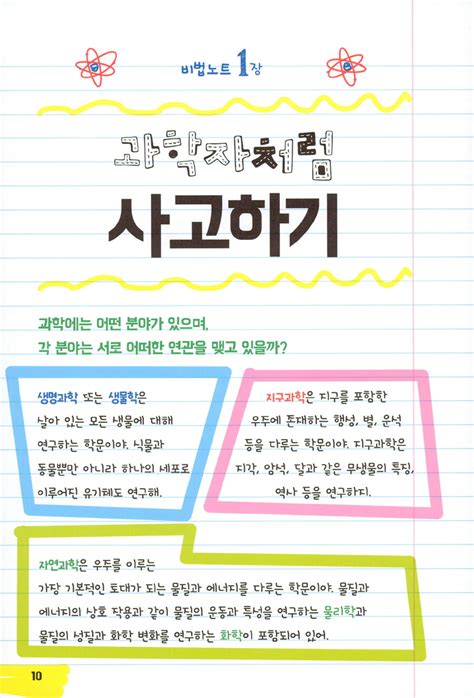 비법노트 1장
과학자처럼
사고하기
과학에는 어떤 분야가 있으며,
각 분야는 서로 어떠한 연관을 맺고 있을까?
생명과학 또는 생물학은
살아 있는 모든 생물에 대해
연구하는 학문이야. 식물과
동물뿐만 아니라 하나의 세포로
이루어진 유기체도 연구해.
지구과학은 지구를 포함한
우주에 존재하는 행성, 별, 운석
등을 다루는 학문이야. 지구과학은
지각, 암석, 달과 같은 무생물의 특징,
역사 등을 연구하지.
자연과학은 우주를 이루는
가장 기본적인 토대가 되는 물질과 에너지를 다루는 학문이야. 물질과
에너지의 상호 작용과 같이 물질의 운동과 특성을 연구하는 물리학과
물질의 성질과 화학 변화를 연구하는 화학이 포함되어 있어.
10